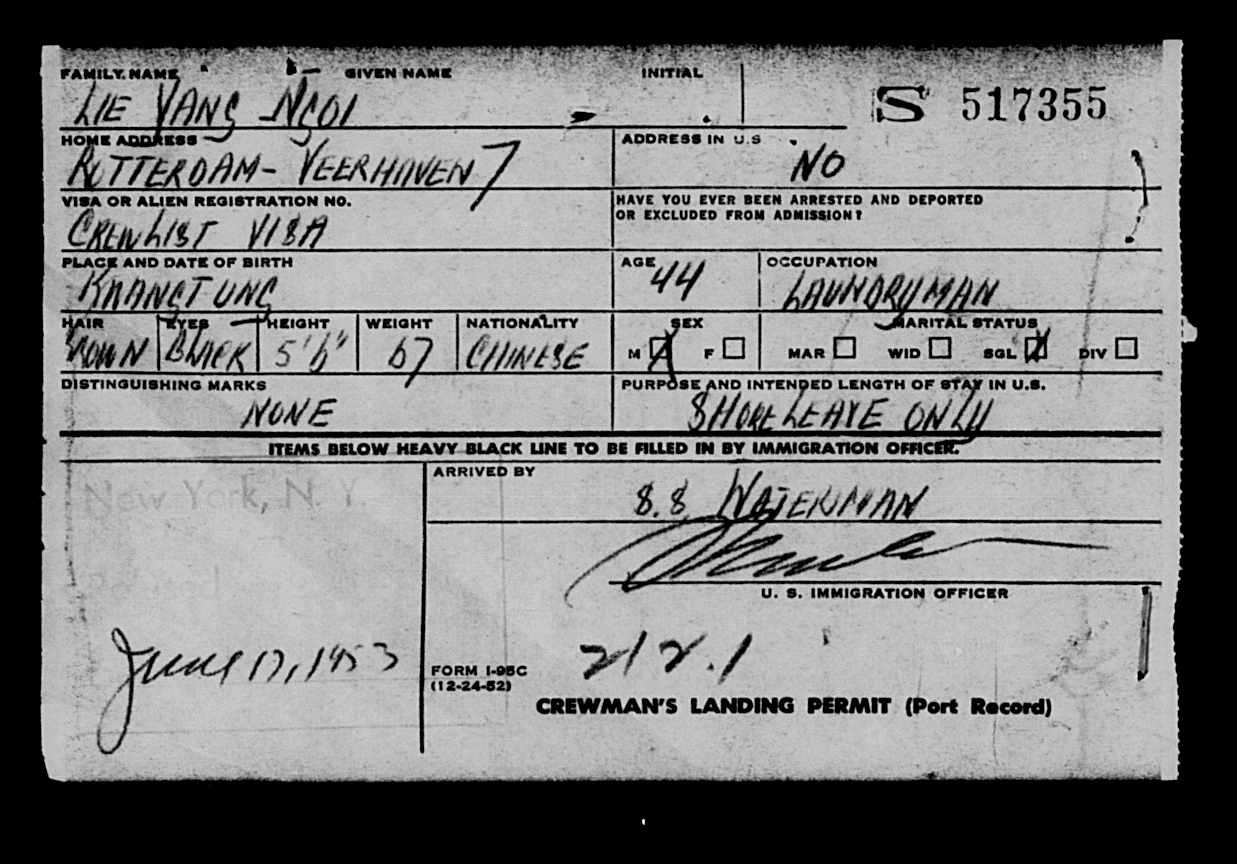 FAMILY NAME GIVEN NAME INITIAL
LIE YANG NGOI - S 517355
HOME ADDRESS ADDRESS IN U.S.
ROTTERDAM - VEERHAVEN 7 NO
VISA OR ALIEN REGISTRATION NO. HAVE YOU EVER BEEN ARRESTED AND DEPORTED
OR EXCLUDED FROM ADMISSION?
CREWLIST VISA
PLACE AND DATE OF BIRTH AGE 44 OCCUPATION
KWANGTUNG LAUNDRYMAN
HAIR EYES HEIGHT WEIGHT NATIONALITY SEX MARITAL STATUS
BROWN BLACK 5'6" 67 CHINESE M F MAR WID SGL DIV
DISTINGUISHING MARKS PURPOSE AND INTENDED LENGTH OF STAY IN U.S.
NONE SHORELEAVE ONLY
ITEMS BELOW HEAVY BLACK LINE TO BE FILLED IN BY IMMIGRATION OFFICER.
ARRIVED BY
New York, N. Y. S.S. WATERMAN
U. S. IMMIGRATION OFFICER
June 17, 1953
FORM I-95C
(12-24-52)
CREWMAN'S LANDING PERMIT (Port Record)